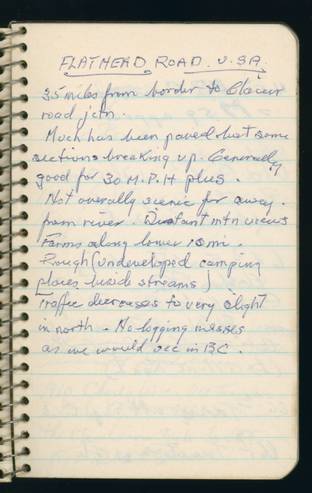 FLATHEAD ROAD. U.S.A.
35 miles from border to Glacier
road jctn.
Much has been paved but some
sections breaking up. Generally
good for 30 M.P.H plus.
Not overally scenic for away
from river. Distant mtn views
Farms along lower 10 mi.
Rough (undeveloped camping
places beside streams)
Traffic decreases to very slight
in north. No logging messes
as we would see in BC.